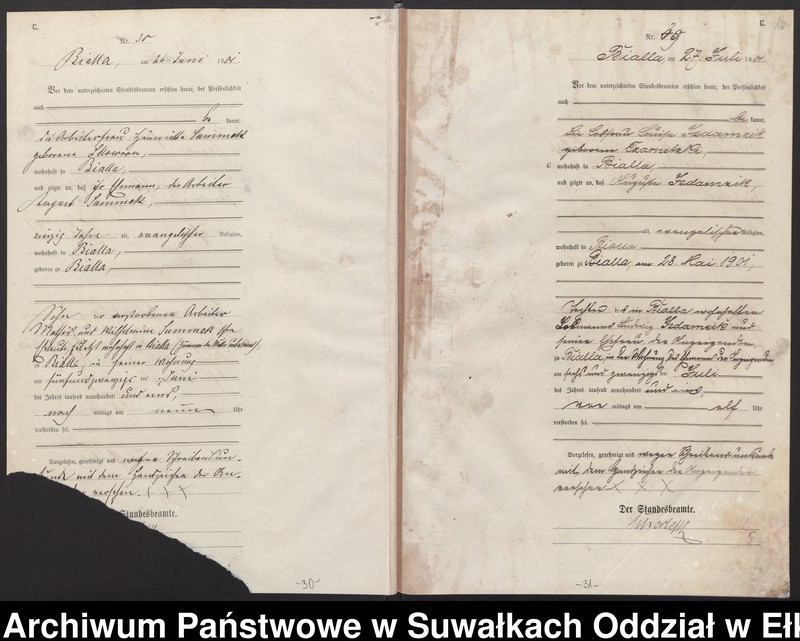 C.
Nr. 38
Bialla, am 26 Juni 1901.
Vor dem unterzeichneten Standesbeamten erschien heute, der Persönlichkeit
nach
be kannt,
die Arbeiterfrau Henriette Sammek
geborene
wohnhaft in Bialla,
und zeigte an, daß ihr Ehemann, der Arbeiter
August Sammek,
vierzig Jahre alt, evangelischer Religion,
wohnhaft in Bialla,
geboren zu Bialla,
Sohn der verstorbenen Arbeiter
und Wilhelmine Sammek
zuletzt wohnhaft in Bialla
zu Bialla, in seiner Wohnung
am fünfundzwanzigs ten Juni
des Jahres tausend neunhundert und eins,
nach mittags um neun Uhr
verstorben sei.
Vorgelesen, genehmigt und wegen Schreibensun-
kunde mit dem Handzeichen der An-
versehen. XXX
Standesbeamte.
-30-
C.
Nr. 39
Bialla am 27. Juli 1901
Vor dem unterzeichneten Standesbeamten erschien heute, der Persönlichkeit
nach
be kannt,
die Losfrau Louise Jedamzik
geborene Czarnetzki,
wohnhaft in Bialla,
und zeigte an, daß Auguste Jedamzik,
alt, evangelischer Religion,
wohnhaft in Bialla
geboren zu Bialla, am 28. Mai 1901,
Tochter des in Bialla wohnhaften
Losmanns Ludwig Jedamzik und
seiner Ehefrau, der Anzeigenden
zu Bialla, in der Wohnung des Ehemanns der Anzeigenden
am sechs und zwanzigs ten Juli
des Jahres tausend neunhundert und eins,
vor mittags um elf Uhr
verstorben sei.
Vorgelesen, genehmigt und wegen Schreibensunkunde
mit dem Handzeichen der Anzeigenden
versehen X X X
Der Standesbeamte.
-31-
Archiwum Państwowe w Suwałkach Oddział w Eł